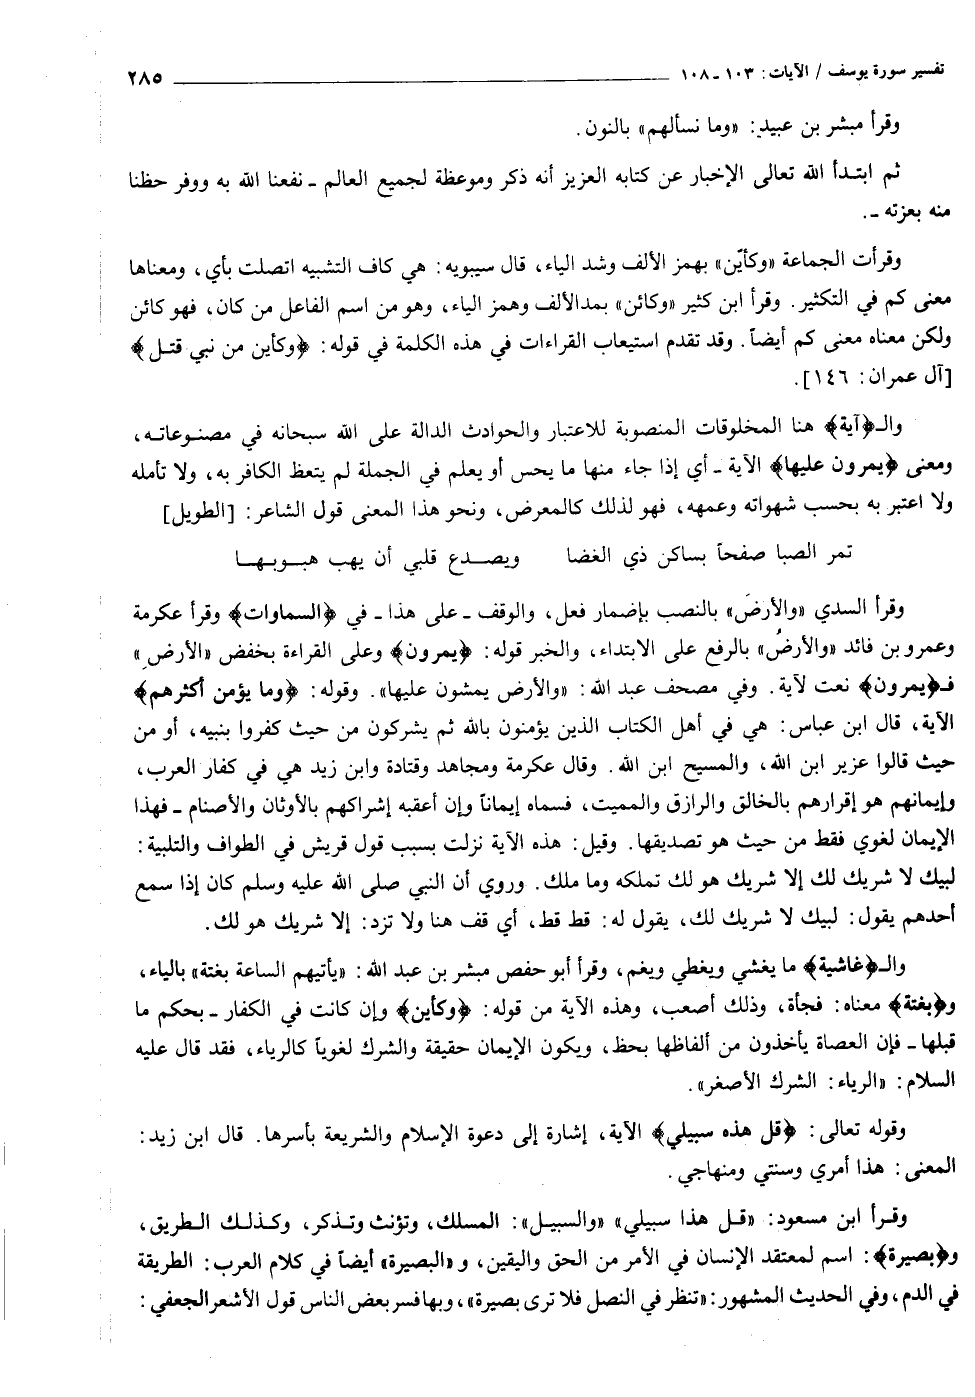 تفسير سورة يوسف / الآيات: ١٠٣ ـ ١٠٨ ٢٨٥
وقرأ مبشر بن عبيد: «وما نسألهم» بالنون.
ثم ابتدأ الله تعالى الإخبار عن كتابه العزيز أنه ذكر وموعظة لجميع العالم ـ نفعنا الله به ووفر حظنا
منه بعزته ـ.
وقرأت الجماعة «وكأيّن» بهمز الألف وشد الياء، قال سيبويه: هي كاف التشبيه اتصلت بأي، ومعناها
معنى كم في التكثير. وقرأ ابن كثير «وكائن» بمد الألف وهمز الياء، وهو من اسم الفاعل من كان، فهو كائن
ولكن معناه معنى كم أيضاً. وقد تقدم استيعاب القراءات في هذه الكلمة في قوله: ﴿وكأين من نبي قتل﴾
[آل عمران: ١٤٦].
والـ﴿آية﴾ هنا المخلوقات المنصوبة للاعتبار والحوادث الدالة على الله سبحانه في مصنوعاته،
ومعنى ﴿يمرون عليها﴾ الآية ـ أي إذا جاء منها ما يحس أو يعلم في الجملة لم يتعظ الكافر به، ولا تأمله
ولا اعتبر به بحسب شهواته وعمهه، فهو لذلك كالمعرض، ونحو هذا المعنى قول الشاعر: [الطويل]
تمر الصبا صفحاً بساكن ذي الغضا ويصدع قلبي أن يهب هبوبها
وقرأ السدي «والأرضَ» بالنصب بإضمار فعل، والوقف ـ على هذا ـ في ﴿السماوات﴾ وقرأ عكرمة
وعمرو بن فائد «والأرضُ» بالرفع على الابتداء، والخبر قوله: ﴿يمرون﴾ وعلى القراءة بخفض «الأرضِ»
فـ﴿يمرون﴾ نعت لآية. وفي مصحف عبد الله: «والأرض يمشون عليها». وقوله: ﴿وما يؤمن أكثرهم﴾
الآية، قال ابن عباس: هي في أهل الكتاب الذين يؤمنون بالله ثم يشركون من حيث كفروا بنبيه، أو من
حيث قالوا عزير ابن الله، والمسيح ابن الله. وقال عكرمة ومجاهد وقتادة وابن زيد هي في كفار العرب،
وإيمانهم هو إقرارهم بالخالق والرازق والمميت، فسماه إيماناً وإن أعقبه إشراكهم بالأوثان والأصنام ـ فهذا
الإيمان لغوي فقط من حيث هو تصديقها. وقيل: هذه الآية نزلت بسبب قول قريش في الطواف والتلبية:
لبيك لا شريك لك إلا شريك هو لك تملكه وما ملك. وروي أن النبي صلى الله عليه وسلم كان إذا سمع
أحدهم يقول: لبيك لا شريك لك، يقول له: قط قط، أي قف هنا ولا تزد: إلا شريك هو لك.
والـ﴿غاشية﴾ ما يغشي ويغطي ويغم، وقرأ أبو حفص مبشر بن عبد الله: «يأتيهم الساعة بغتة» بالياء،
و﴿بغتة﴾ معناه: فجأة، وذلك أصعب، وهذه الآية من قوله: ﴿وكأين﴾ وإن كانت في الكفار ـ بحكم ما
قبلها ـ فإن العصاة يأخذون من ألفاظها بحظ، ويكون الإيمان حقيقة والشرك لغوياً كالرياء، فقد قال عليه
السلام: «الرياء: الشرك الأصغر».
وقوله تعالى: ﴿قل هذه سبيلي﴾ الآية، إشارة إلى دعوة الإسلام والشريعة بأسرها. قال ابن زيد:
المعنى: هذا أمري وسنتي ومنهاجي.
وقرأ ابن مسعود: «قل هذا سبيلي» «والسبيل»: المسلك، وتؤنث وتذكر، وكذلك الطريق،
و﴿بصيرة﴾: اسم لمعتقد الإنسان في الأمر من الحق واليقين، و «البصيرة» أيضاً في كلام العرب: الطريقة
في الدم، وفي الحديث المشهور: «تنظر في النصل فلا ترى بصيرة»، وبها فسر بعض الناس قول الأشعر الجعفي: